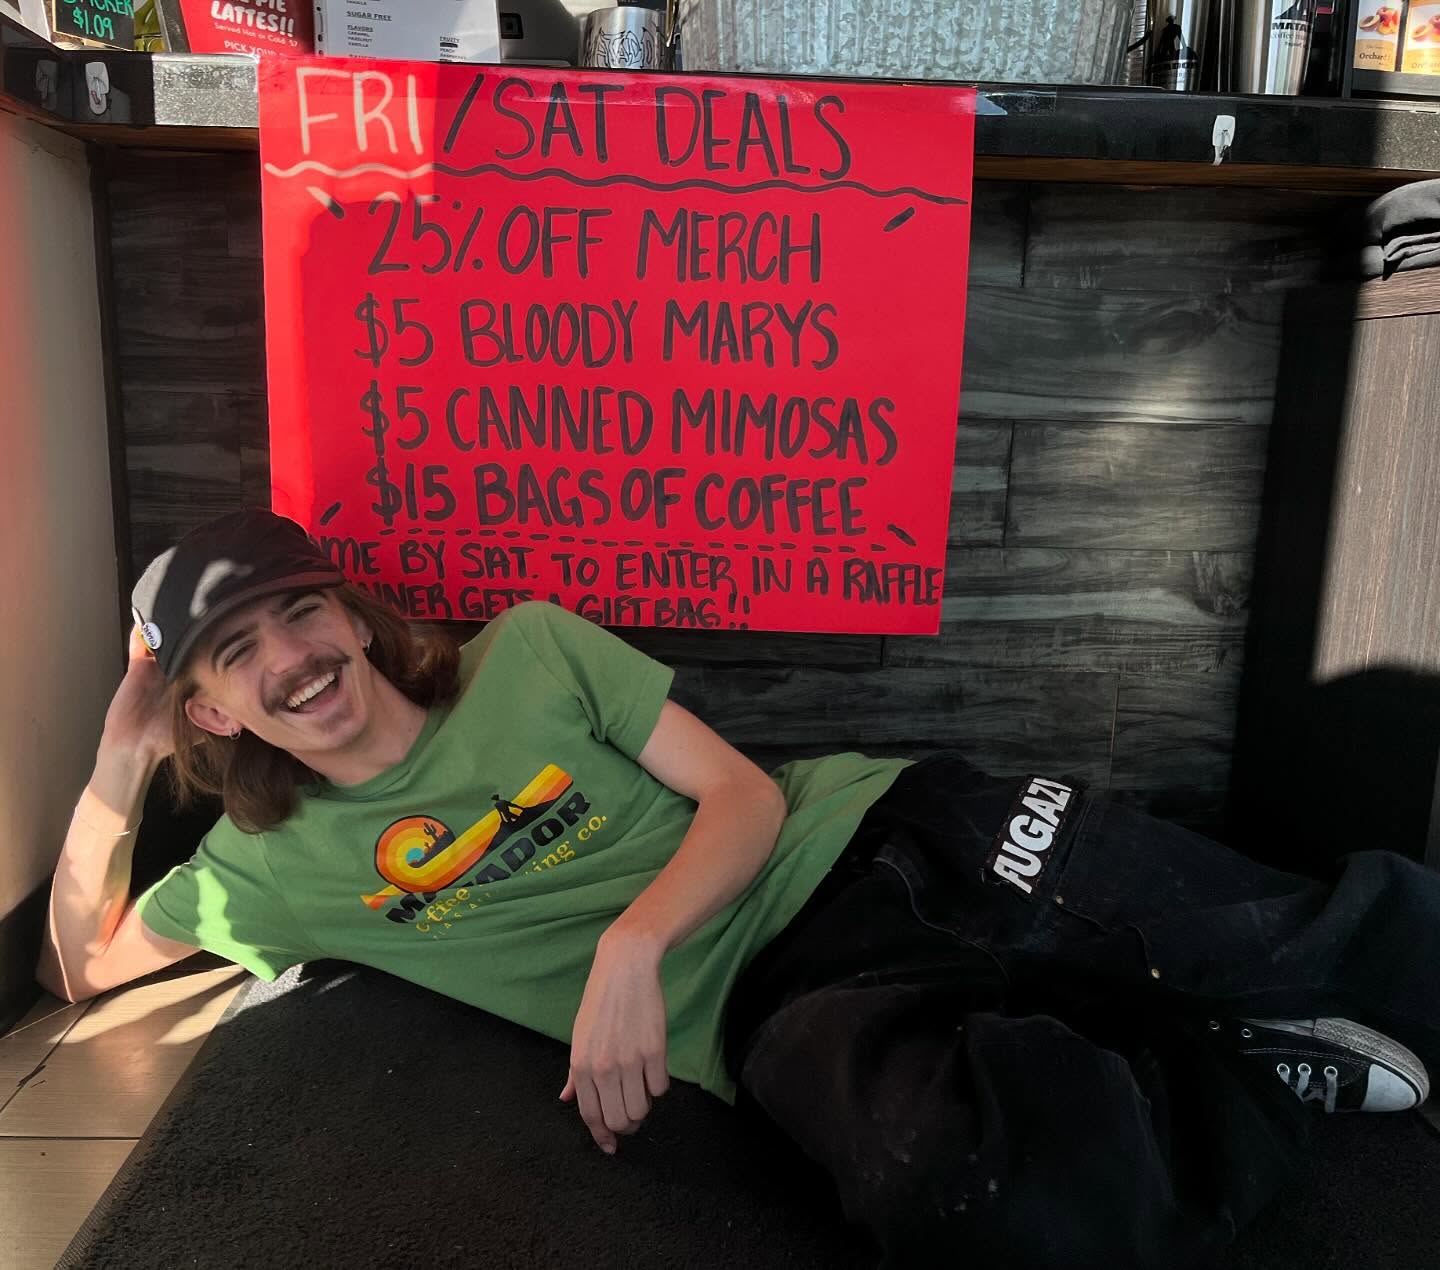 $1.09
LATTES!!
Served Hot or Cold
PICK YOUR
SUGAR FREE
VANILLA
FLAVORS
CARAMEL
HAZELNUT
VANILLA
FRUITY
PEACH
MATADOR
FRI/SAT DEALS
25% OFF MERCH
$5 BLOODY MARYS
$5 CANNED MIMOSAS
$15 BAGS OF COFFEE
ME BY SAT. TO ENTER IN A RAFFLE
NNER GETS A GIFT BAG!!
MATADOR
coffee
ing co.
FUGAZI